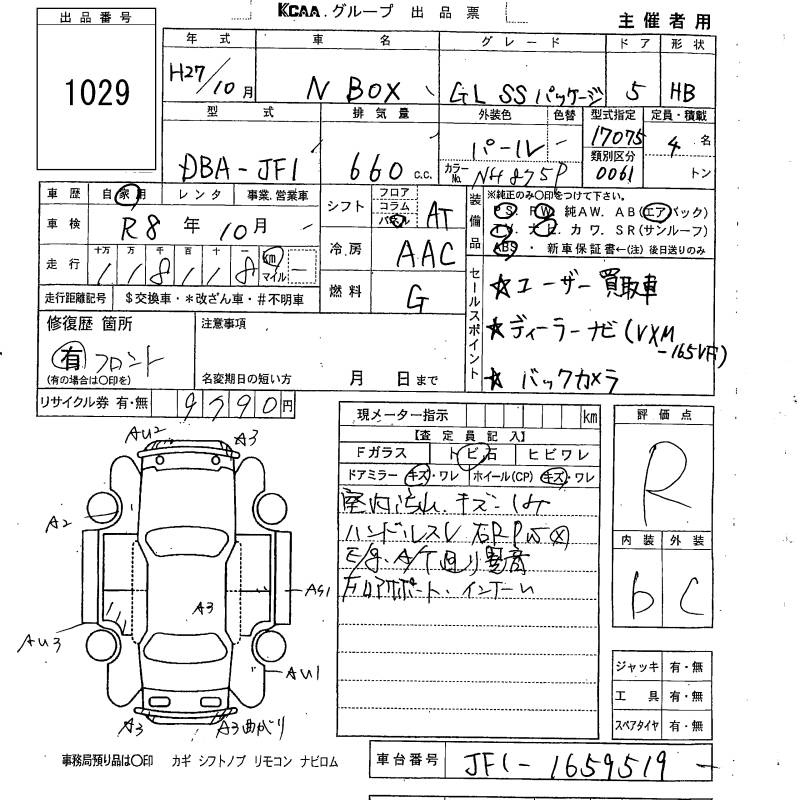 KCAA グループ 出品票
主催者用
出品番号
1029
年式 車名 グレード ドア 形状
H27/10月 N BOX GL SSパッケージ 5 HB
型式 排気量 外装色 色替 型式指定 定員・積載
DBA-JF1 660 c.c. パール 17075 4名
カラーNo. NH875P 類別区分 0061 トン
車歴 自家用 レンタ 事業、営業車
車検 R8年 10月
走行 十万 万 千 百 十 一
118118 km マイル
走行距離記号 $交換車・*改ざん車・#不明車
シフト フロア コラム パネル AT
冷房 AAC
燃料 G
装備品 ※純正のみ〇印をつけて下さい。
PS. PW. 純AW. AB(エアバック)
TV. ナビ. カワ. SR(サンルーフ)
ABS・新車保証書←(注)後日送りのみ
セールスポイント
☆ユーザー買取車
☆ディーラーナビ(VXM
-165VFi)
☆バックカメラ
修復歴 箇所
有 フロント
(有の場合は〇印を)
注意事項
名変期日の短い方 月 日まで
リサイクル券 有・無 9790円
現メーター指示 km
【査定員記入】
Fガラス トビ石 ヒビワレ
ドアミラー キズ・ワレ ホイール(CP) キズ・ワレ
室内汚れ. キズ
ハンドルスレ 右RPW
E/g. A/T 廻り異音
評価点
R
内装 外装
b C
AU2 A3
A2
AS1
A3
AU3
AU1
A3 A3曲がり
ジャッキ 有・無
工具 有・無
スペアタイヤ 有・無
事務局預り品は〇印 カギ シフトノブ リモコン ナビロム
車台番号 JF1-1659519